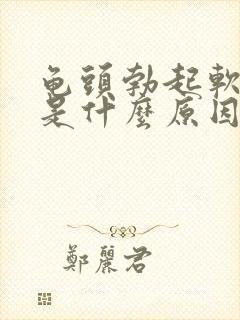 龟頭勃起軟
是什麼原因
鄭麗君